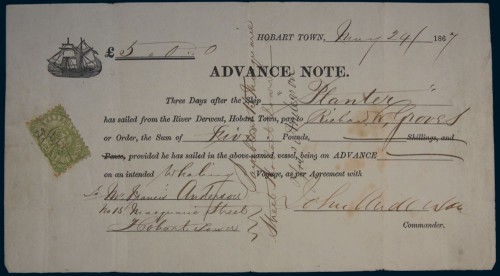 HOBART TOWN, May 24/ 1867
£ 5 - 0 - 0
ADVANCE NOTE.
Three Days after the Ship "Planter"
has sailed from the River Derwent, Hobart Town, pay to Richard Groves
or Order, the Sum of Five Pounds, Shillings, and
Pence, provided he has sailed in the above-named vessel, being an ADVANCE
on an intended Whaling Voyage, as per Agreement with
To Mr Francis Anderson
No 15 Macquarie Street
Hobart Town
John Anderson
Commander.